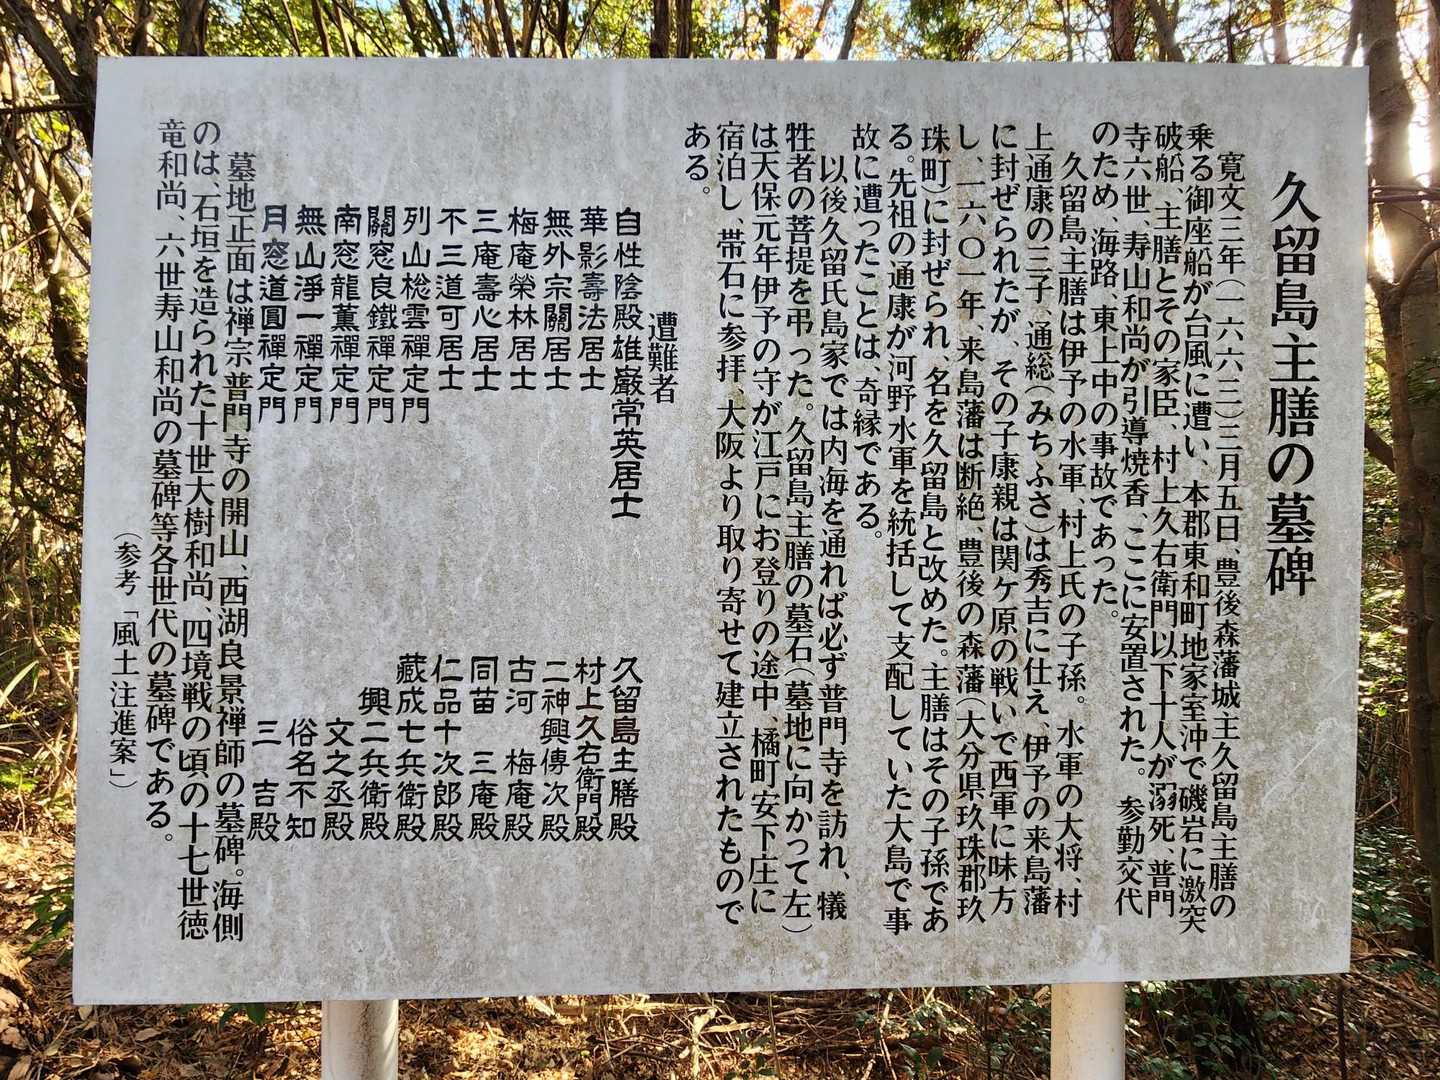 久留島主膳の墓碑
寛文三年(一六六三)三月五日、豊後森藩城主久留島主膳の
乗る御座船が台風に遭い、本郡東和町地家室沖で磯岩に激突
破船、主膳とその家臣、村上久右衛門以下十人が溺死、普門
寺六世、寿山和尚が引導焼香、ここに安置された。参勤交代
のため、海路、東上中の事故であった。
久留島主膳は伊予の水軍、村上氏の子孫。水軍の大将、村
上通康の三子、通総(みちふさ)は秀吉に仕え、伊予の来島藩
に封ぜられたが、その子康親は関ケ原の戦いで西軍に味方
し、一六〇一年、来島藩は断絶、豊後の森藩(大分県玖珠郡玖
珠町)に封ぜられ、名を久留島と改めた。主膳はその子孫であ
る。先祖の通康が河野水軍を統括して支配していた大島で事
故に遭ったことは、奇縁である。
以後久留氏島家では内海を通れば必ず普門寺を訪れ、犠
牲者の菩提を弔った。久留島主膳の墓石(墓地に向かって左)
は天保元年伊予の守が江戸にお登りの途中、橘町安下庄に
宿泊し、帯石に参拝、大阪より取り寄せて建立されたもので
ある。
遭難者
自性陰殿雄巌常英居士 久留島主膳殿
華影壽法居士 村上久右衛門殿
無外宗關居士 二神興傳次殿
梅庵榮林居士 古河 梅庵殿
三庵壽心居士 同苗 三庵殿
不三道可居士 仁品十次郎殿
列山棇雲禪定門 藏成七兵衛殿
關窓良鐵禪定門 興二兵衛殿
南窓龍薫禪定門 文之丞殿
無山淨一禪定門 俗名不知
月窓道圓禪定門 三 吉殿
墓地正面は禅宗普門寺の開山、西湖良景禅師の墓碑。海側
のは、石垣を造られた十世大樹和尚、四境戦の頃の十七世徳
竜和尚、六世寿山和尚の墓碑等各世代の墓碑である。
(参考「風土注進案」)